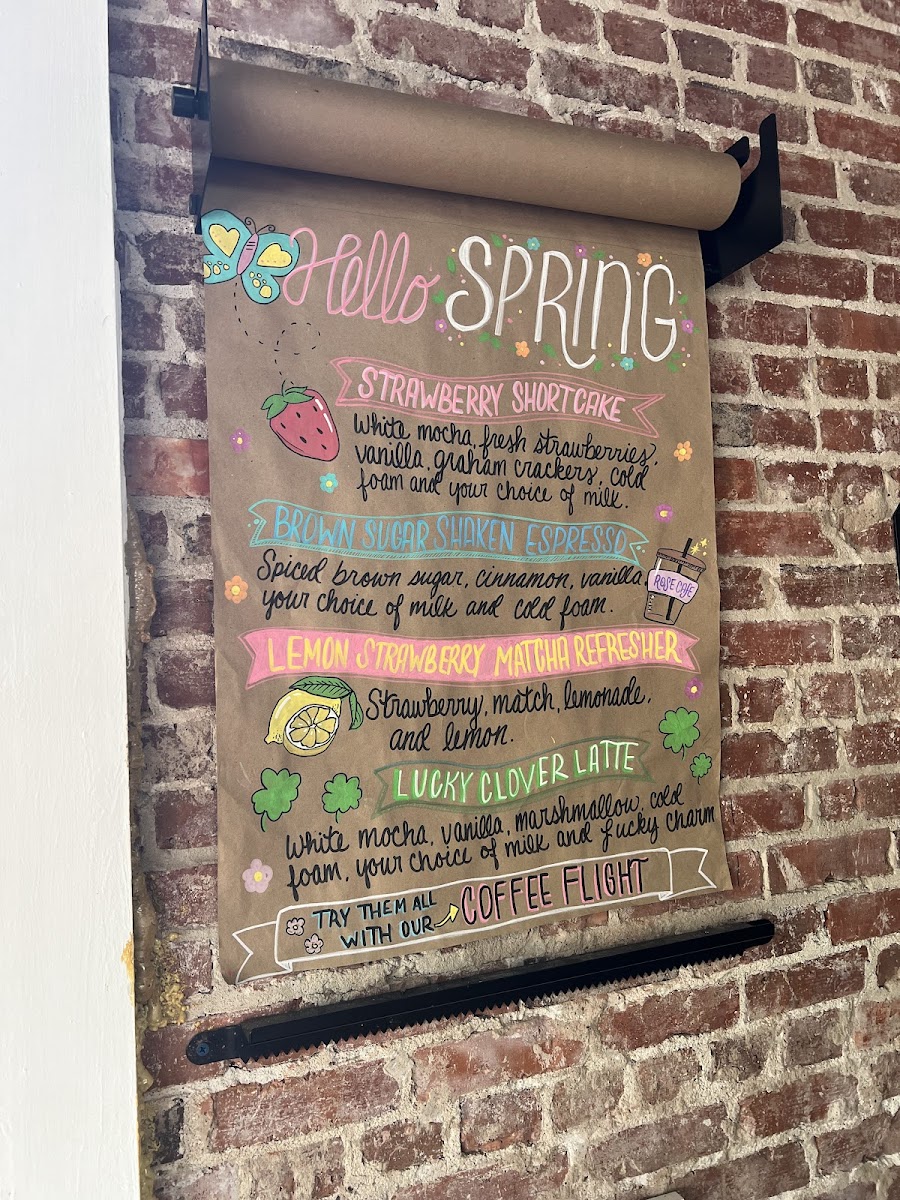 Hello SPRING
STRAWBERRY SHORTCAKE
White mocha, fresh strawberries,
vanilla, graham crackers, cold
foam and your choice of milk.
BROWN SUGAR SHAKEN ESPRESSO
Spiced brown sugar, cinnamon, vanilla,
your choice of milk and cold foam.
ROSE CAFE
LEMON STRAWBERRY MATCHA REFRESHER
Strawberry, match, lemonade,
and lemon.
LUCKY CLOVER LATTE
White mocha, vanilla, marshmallow, cold
foam, your choice of milk and lucky charm
TRY THEM ALL
WITH OUR COFFEE FLIGHT